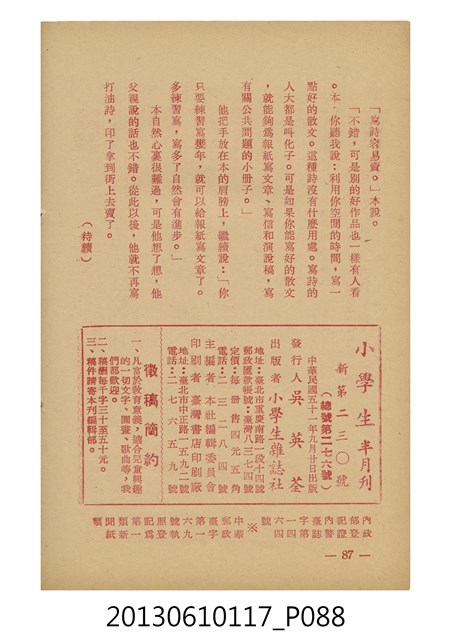 「寫詩容易賣。」本說。
「不錯，可是別的好作品也一樣有人看
。本，你聽我說：利用你空閒的時間，寫一
點好的散文。這種詩沒有什麼用處。寫詩的
人大都是叫化子。可是如果你能寫好的散文
，就能夠為報紙寫文章、寫信和演說稿，寫
有關公共問題的小册子。」
他把手放在本的肩膀上，繼續說：「你
只要練習寫幾年，就可以給報紙寫文章了。
多練習寫，寫多了自然會有進步。」
本自然心裏很難過，可是他想了想，他
父親說的話也不錯。從此以後，他就不再寫
打油詩，印了拿到街上去賣了。
（待續）
小學生半月刊
新第二三〇號
（總號第二七六號）
中華民國五十一年九月廿日出版
發行人 吳英荃
出版者 小學生雜誌社
地址：臺北市重慶南路一段十四號
郵政匯款帳號：臺灣八三七四號
定價：每册售四元五角
電話：二三一八四號
主編者 本社編輯委員會
印刷者 臺灣書店印刷廠
地址：臺北市中正路五九二號
電話：二七六五九號
徵稿簡約
一、凡富於教育意義，適合兒童興趣
的一切文字、圖畫、歌曲等，我
們都歡迎。
二、稿酬每千字三十至五十元。
三、稿件請寄本刊編輯部。
內政部登記證內警臺誌字第一四六四號
※
中華郵政臺字第一六九九號執照登記爲第一類新聞紙類
— 87 —
20130610117_P088